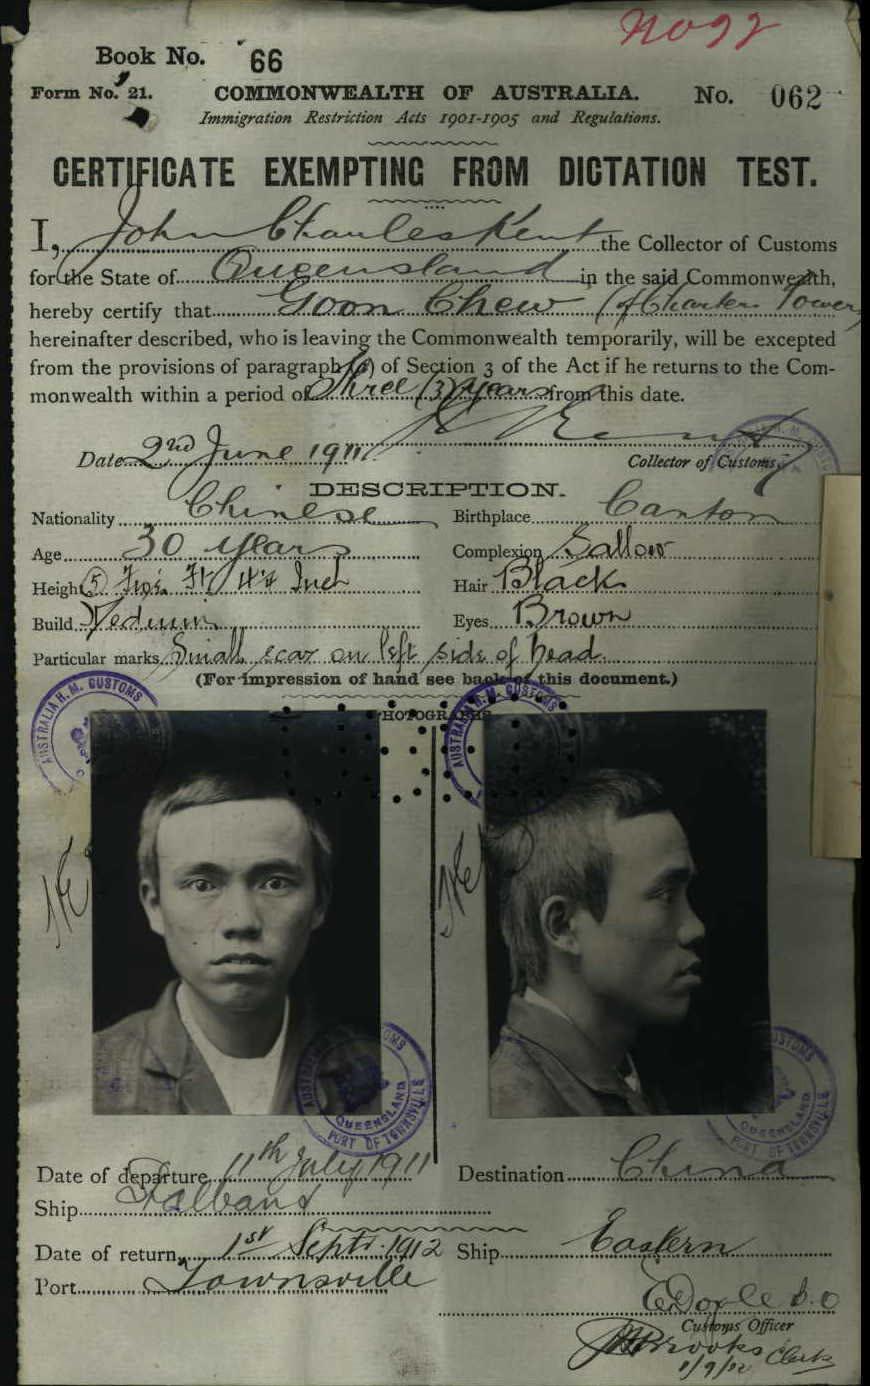 No 92
Book No. 66
Form No. 21. COMMONWEALTH OF AUSTRALIA. No. 062
Immigration Restriction Acts 1901-1905 and Regulations.
CERTIFICATE EXEMPTING FROM DICTATION TEST.
I, John Charles Kent the Collector of Customs
for the State of Queensland in the said Commonwealth,
hereby certify that Goon Chew (of Charters Towers)
hereinafter described, who is leaving the Commonwealth temporarily, will be excepted
from the provisions of paragraph (a) of Section 3 of the Act if he returns to the Com-
monwealth within a period of Three (3) Years from this date.
Date 2nd June 1911
Collector of Customs.
DESCRIPTION.
Nationality Chinese Birthplace Canton
Age 30 years Complexion Sallow
Height 5 Ft 4¼ Inch Hair Black
Build Medium Eyes Brown
Particular marks Small scar on left side of head
(For impression of hand see back of this document.)
PHOTOGRAPHS
AUSTRALIA H. M. CUSTOMS
AUSTRALIA H. M. CUSTOMS
QUEENSLAND
PORT OF TOWNSVILLE
QUEENSLAND
PORT OF TOWNSVILLE
Date of departure 11th July 1911 Destination China
Ship
Date of return 1st Sept. 1912 Ship Eastern
Port Townsville
EDoyle
Customs Officer
Brooks Clerk
1/9/12